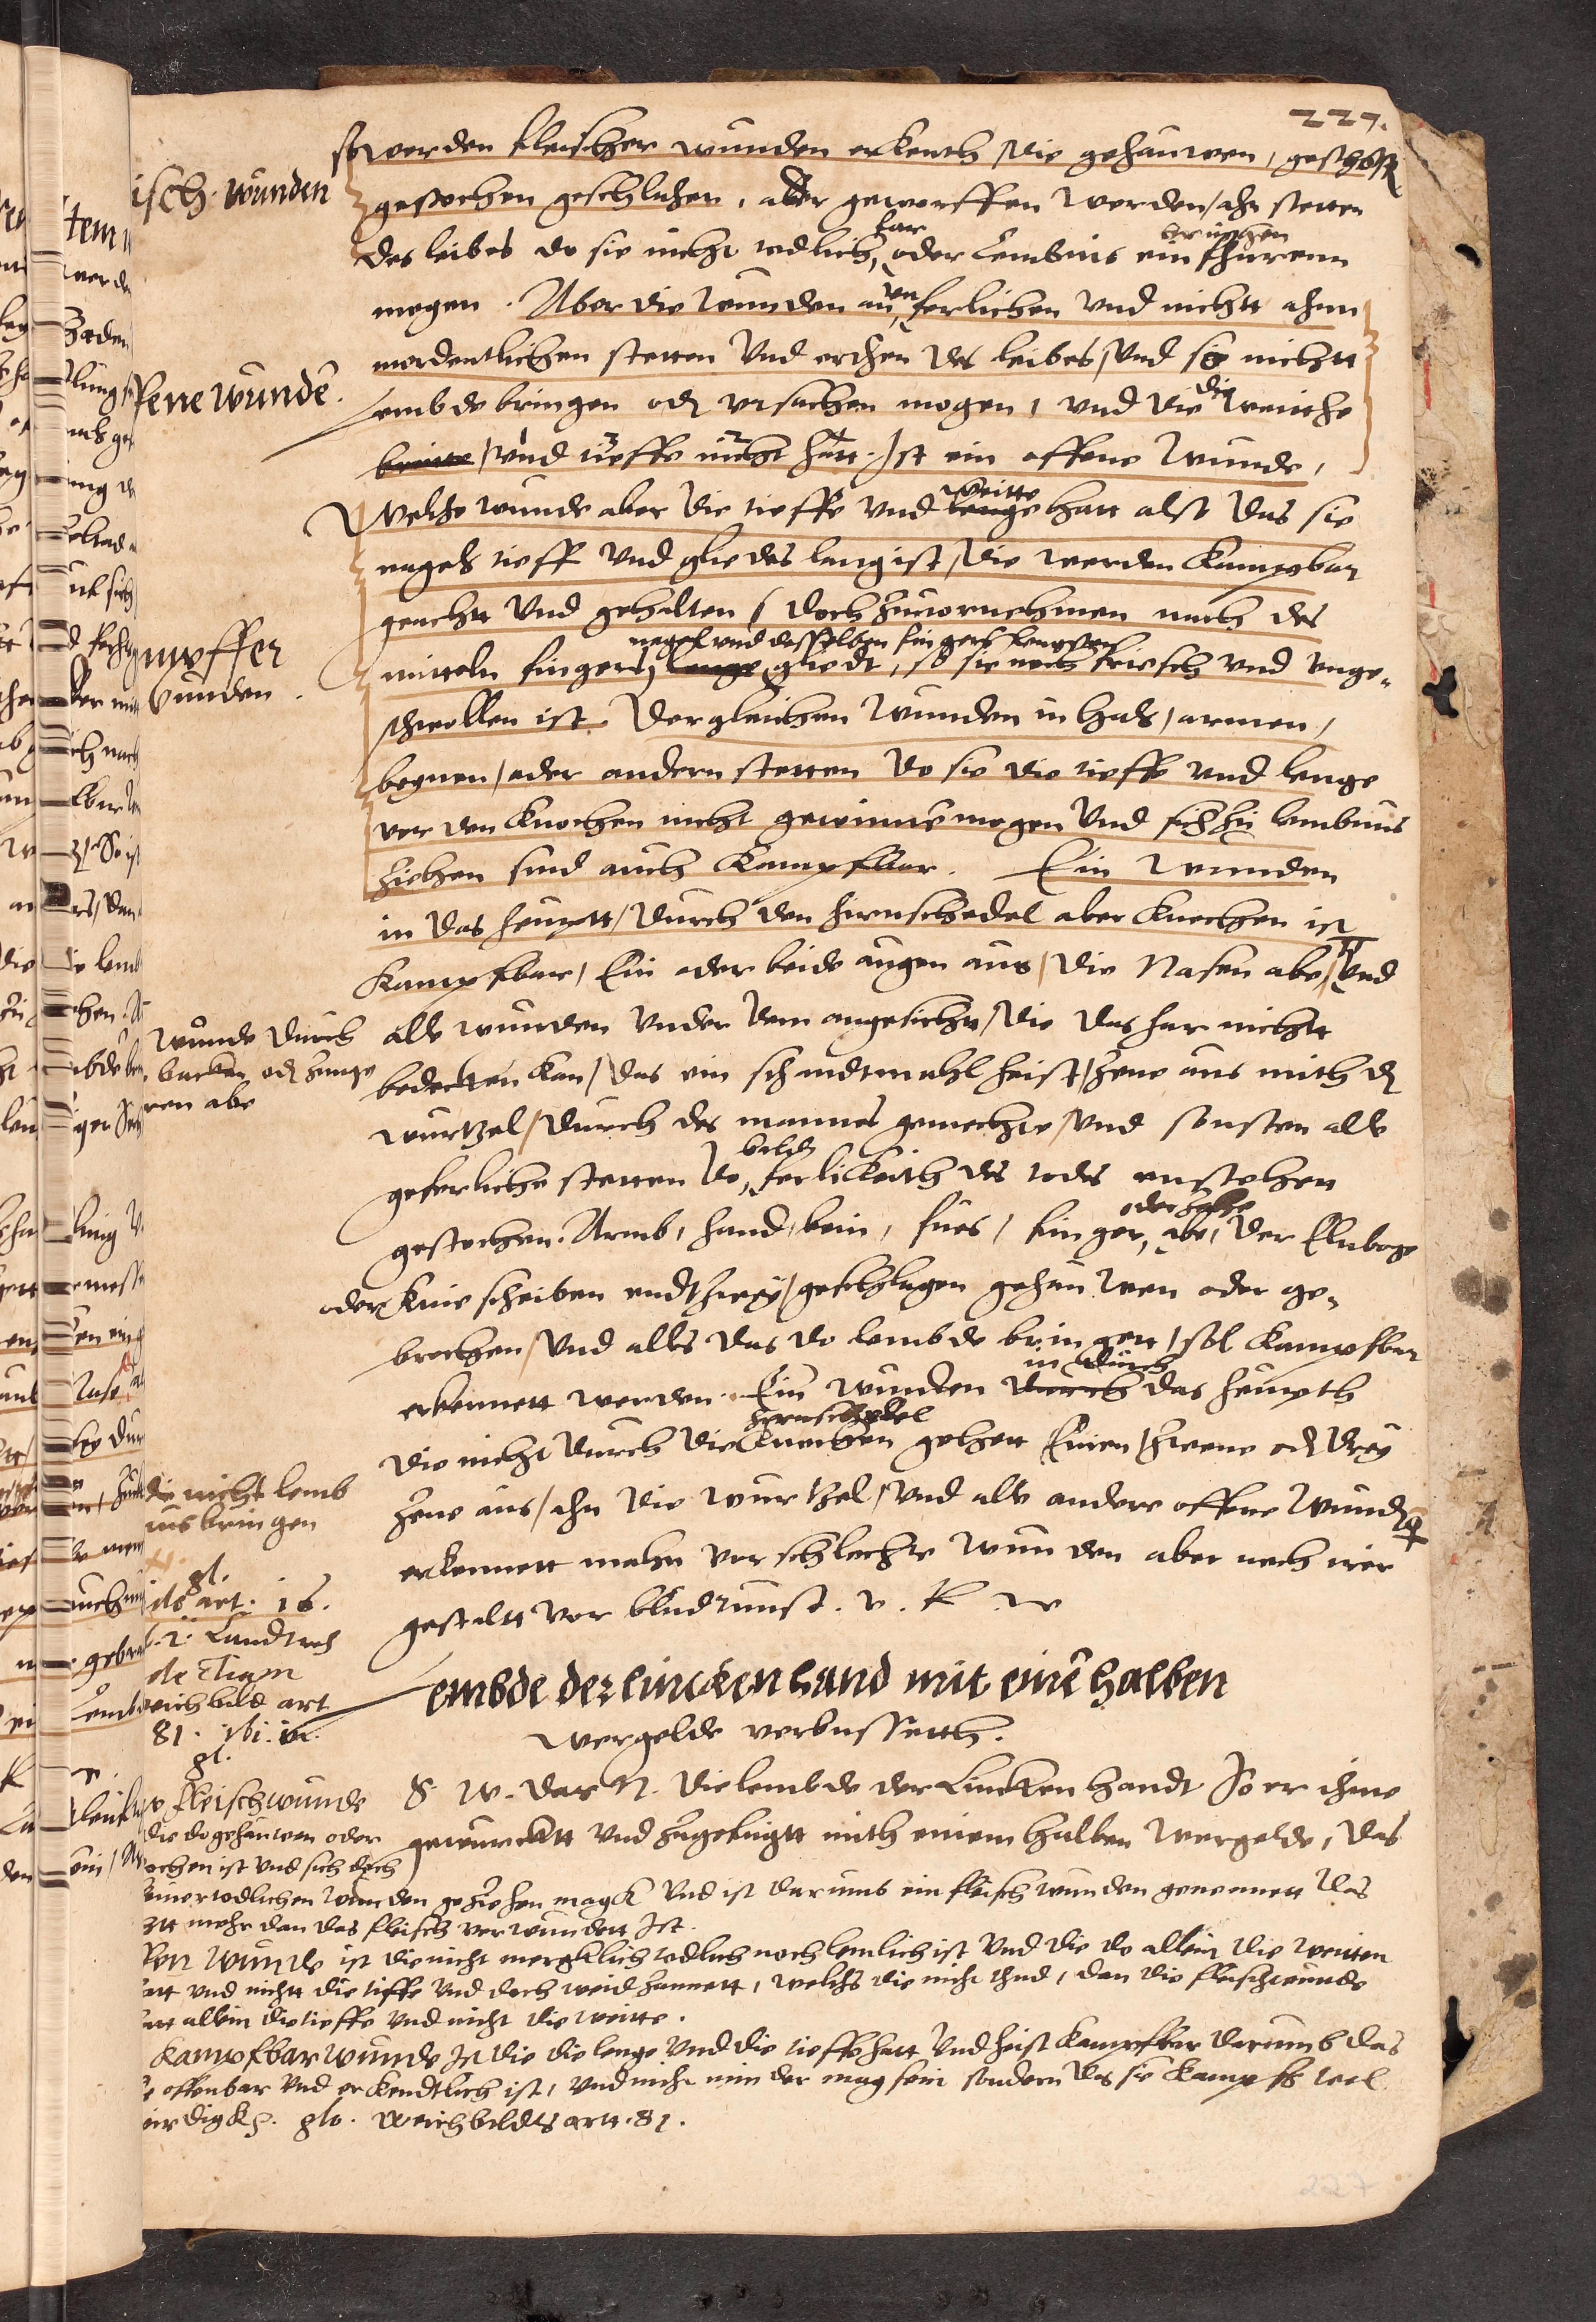 227.
so werden fleischer wunden erkenth / die gehauwen, geschosz
gestochen geschlahen, ader geworffen werden / ahn stetten
des leibes do sie nicht todlich far oder Lembnis ein furenn bringen
mogen. Aber die wunden an un ferlichen und nichtt ahnn
mordentlichen stetten und orthen des leibes / und so nichtt
Lembde bringen od ursachen mogen, und die die weithe
breitte / und tieffe nicht hatt. Ist ein offene Wunde,
Welche wunde aber die tieffe und weitte lenge hatt also das sie
nagels tieff und gliedes lang ist / die werden Kampbar
geachtt und gehalten / doch zuvornehmen nach des
nagel und desselben fingers lengsten
mitteln fingers lenge gliedt, so sie noch friesch und unge-
schwollen ist. Dergleichen wunden in hals / armen,
beynen / ader andern stetten do sie die tieffe und lenge
vor den knochen nicht gewinnē mogen und sich zu lembnus
ziehen sind auch Kampfbar. Ein wunden
in das heuptt / durch den hirnschedel aber knochen ist
Kampfbar, Ein oder beide augen aus / die Nasen abe / und
alle wunden under dem angesicht / die das har nichtt
bedecken kan / das ein schandtmahl heist / zene aus mith d
wurtzel / durch des mannes gemechte / und sonsten alle
geferliche stetten do balde ferlickeith des todes enstehen
gestochen. Armb, hand, bein, fues, finger, oder zehe abe, der Elnboge
oder knie scheiben endtzwey / geschlagen gehauwen oder ge-
brochen / und alles das do lembde bringett, sol Kampfbar
erkennett werden. Ein wunden durch in durch das heupth
die nicht durch die knochen hirnschedel gehett Einen / zweene od drey
zene aus / ahn die wurtzel / und alle andere offene wunde
erkennett mahn vor schlechte wunden aber nach irer
gestaltt vor bludrunst. v. R w
Lembde der lincken hand mit einē halben
wergelde verbussetth.
S. W. Das N. die lembde der Lincken handt so er ihme
gewurcktt und zugefugtt mith einem halben wergelde, das
isch. wunden
fene wundē.
mpffer
wunden.
wunde durch
backen od zunge
ren abe
die nicht lemb
nus bringen
gl.
ilds art. 16.
Landtrech
weichbild art
81. ibi. in
gl.
fleischwunde
die do gehauwen oder
ochen ist und sich doch
einer todlichen wunden geziehen magk und ist darumb ein fleisch wunden genennett das
tt mehr dan das fleisch verwundett ist.
wunde ist die nicht mergklich todlich noch lemlich ist und die do allein die weitten
att und nichtt die tieffe und doch, welchs die nicht thud, dan die fleischwunde
att allein die tieffe und nicht die weitte.
Kampfbar wunde Ist die die lenge und die tieffe hatt und heist Kampfbar darumb das
offenbar und erkendtlich ist, und nicht minder mag sein sondern das sie kampfs wol
wirdigk. glo. Weichbildts artt. 81.
227